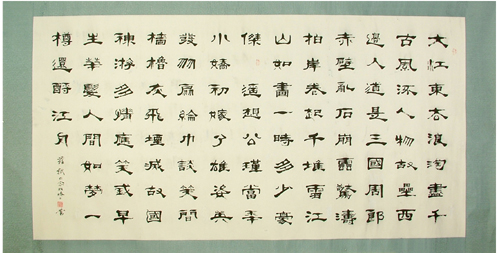 大江東去浪淘盡千
古風流人物故壘西
邊人道是三國周郎
赤壁亂石崩雲驚濤
拍岸卷起千堆雪江
山如畫一時多少豪
傑遙想公瑾當年
小嬌初嫁了雄姿英
發羽扇綸巾談笑間
檣櫓灰飛煙滅故國
神游多情應笑我早
生華髮人間如夢一
樽還酹江月